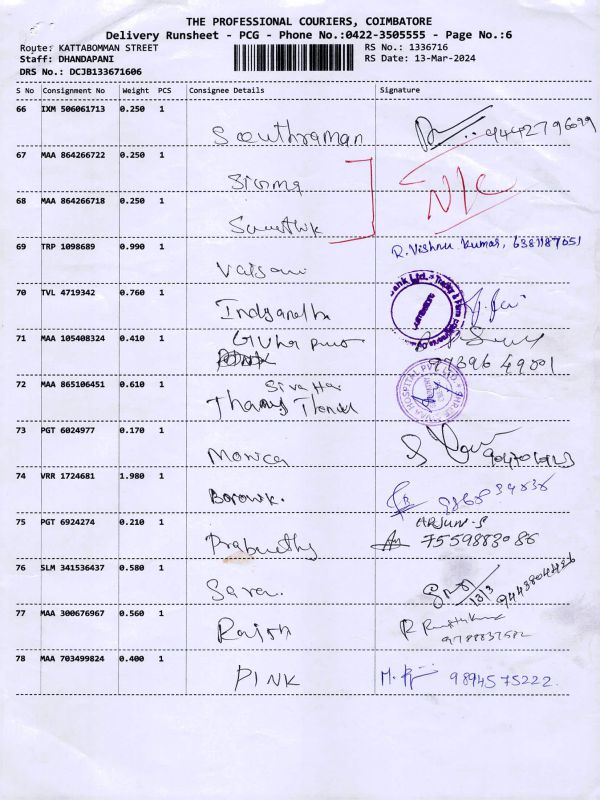 THE PROFESSIONAL COURIERS, COIMBATORE
Delivery Runsheet - PCG - Phone No.:0422-3505555 - Page No.:6
Route: KATTABOMMAN STREET
RS No.: 1336716
Staff: DHANDAPANI
RS Date: 13-Mar-2024
DRS No.: DCJB133671606
S No Consignment No Weight PCS Consignee Details Signature
66 IXM 506061713 0.250 1
Southraman
67 MAA 864266722 0.250 1
N/C
68 MAA 864266718 0.250 1
69 TRP 1098689 0.990 1
R. Vishnu Kumar, 6381187051
70 TVL 4719342 0.760 1
71 MAA 105408324 0.410 1
72 MAA 865106451 0.610 1
73 PGT 6024977 0.170 1
Monica
74 VRR 1724681 1.980 1
75 PGT 6924274 0.210 1
ARJUN.S
7559883086
76 SLM 341536437 0.580 1
Sara.
13/3
77 MAA 300676967 0.560 1
78 MAA 703499824 0.400 1
PINK 9894575222.